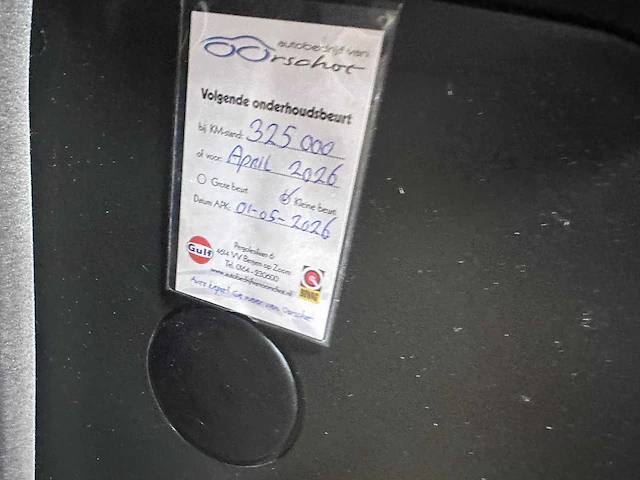 autobedrijf van
Oorschot
Volgende onderhoudsbeurt
bij KM-stand: 325000
of voor: April 2026
Grote beurt Kleine beurt
Datum APK: 01-05-2026
Gulf
4614 VV Bergen op Zoom
Tel. 0164 - 230600
www.autobedrijfvanoorschot.nl
van Oorschot